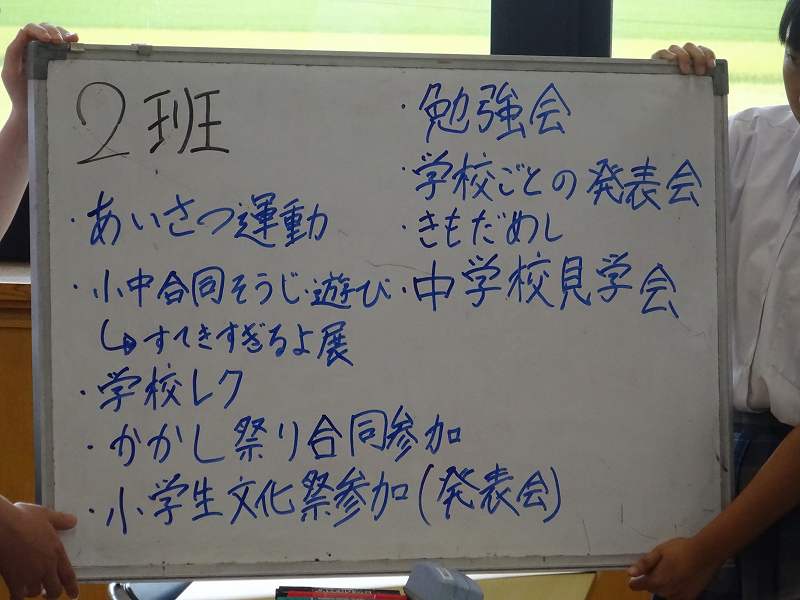 2班
・あいさつ運動
・小中合同そうじ・遊び
↳すてきすぎるよ展
・学校レク
・かかし祭り合同参加
・小学生文化祭参加(発表会)
・勉強会
・学校ごとの発表会
・きもだめし
・中学校見学会